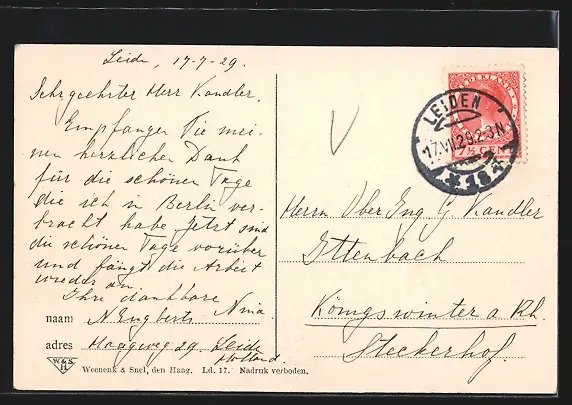 Leide, 17-7-29.
Sehrgeehrter Herr Kandler.
Empfangen Sie mei-
nen herzlichen Dank
für die schönen Tage
die ich in Berlin ver-
bracht habe Jetzt sind
die schönen Tage vorüber
und fängt die Arbeit
wieder an.
Ihre dankbare
Nina.
naam N Engberts
adres Haagweg 29. Leide
Holland.
W & S
H
Weenenk & Snel, den Haag. Ld. 17. Nadruk verboden.
NEDERLAND
7½ CENT
LEIDEN
17.VII.29.2-3N
* 18 *
Herrn Ober Ing G. Kandler
Ittenbach
Königswinter a Rh.
Steckerhof.